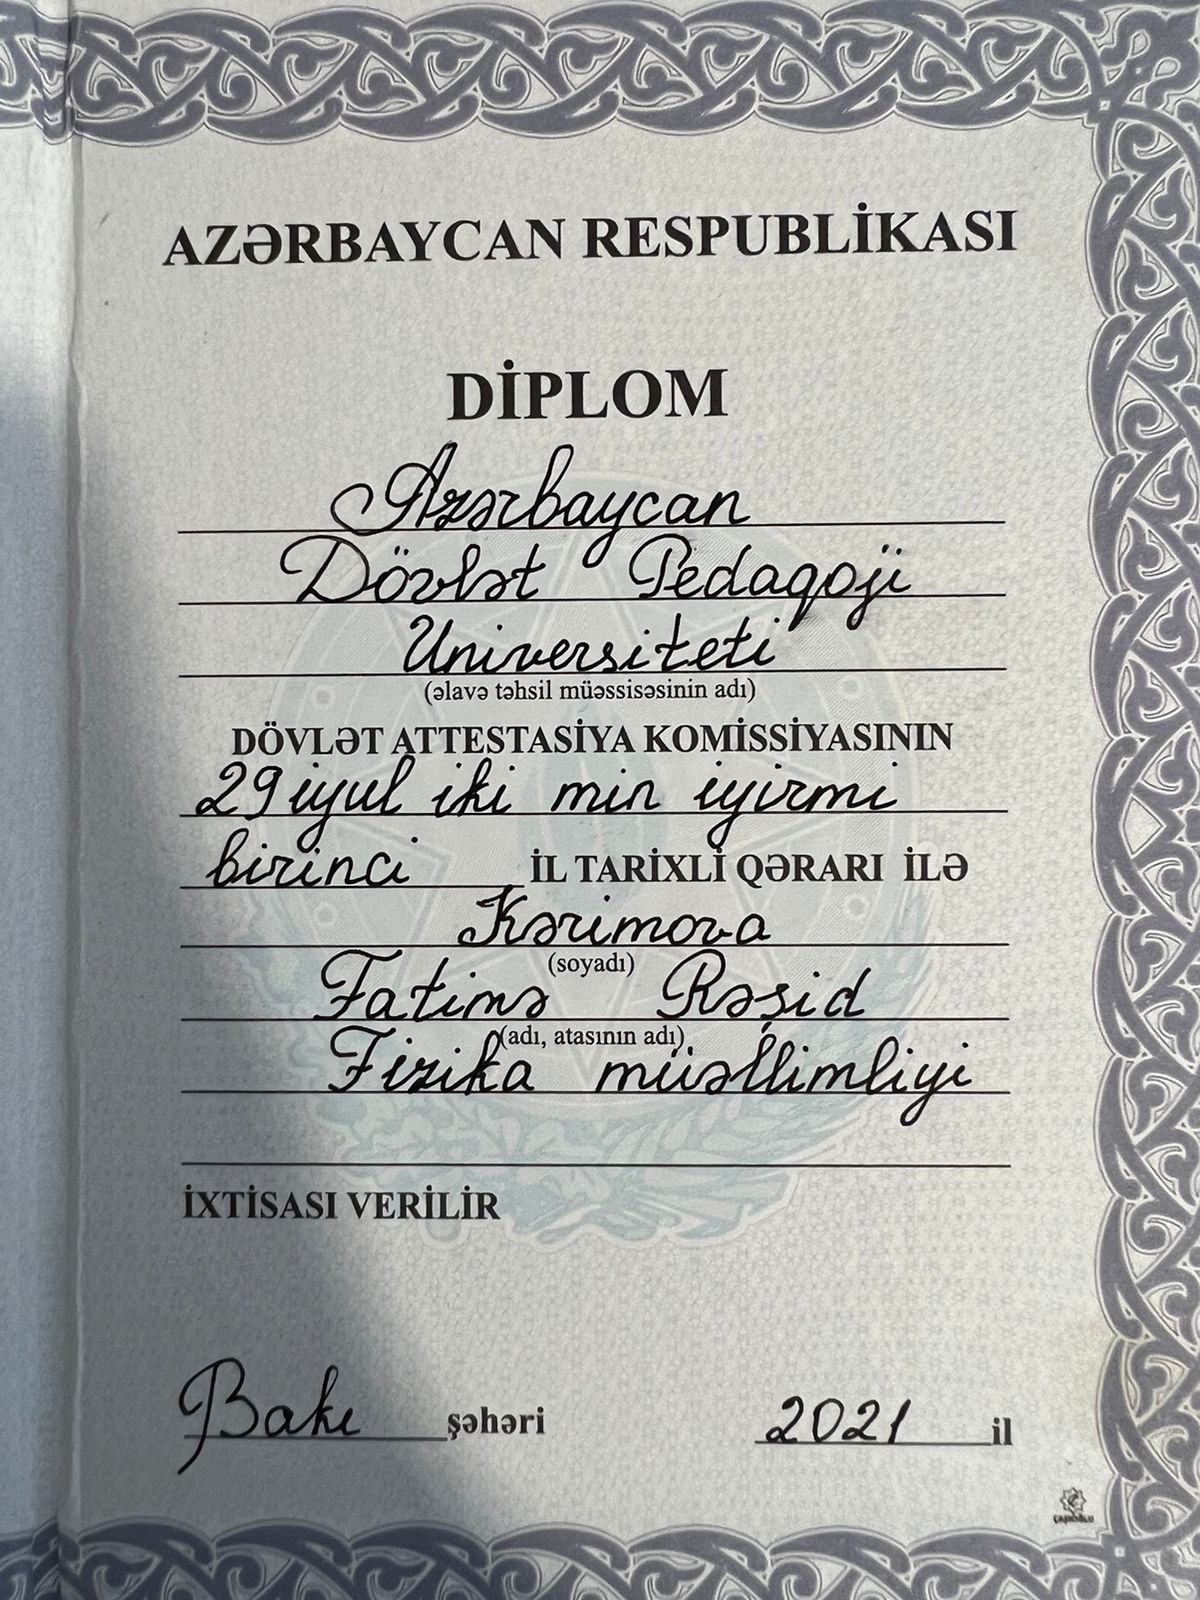 AZƏRBAYCAN RESPUBLİKASI
DİPLOM
Azərbaycan
Dövlət Pedaqoji
Universiteti
(əlavə təhsil müəssisəsinin adı)
DÖVLƏT ATTESTASİYA KOMİSSİYASININ
29 iyul iki min iyirmi
birinci İL TARİXLİ QƏRARI İLƏ
Kərimova
(soyadı)
Fatimə Rəşid
(adı, atasının adı)
Fizika müəllimliyi
İXTİSASI VERİLİR
Bakı şəhəri 2021 il